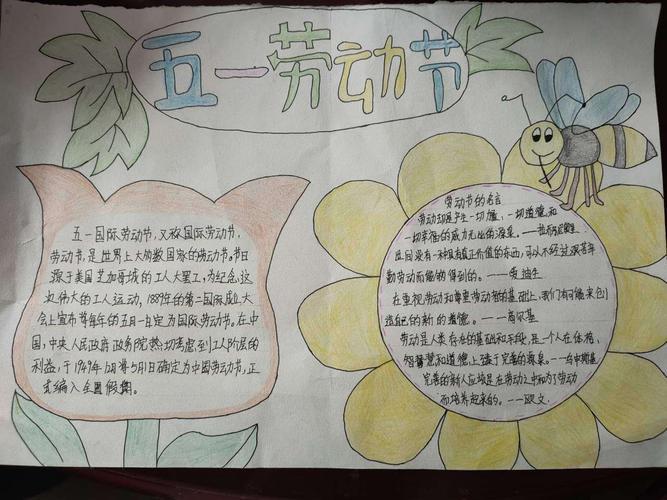 五一劳动节
五一国际劳动节,又称国际劳动节,
劳动节,是世界上大多数国家的劳动节。节日
源于美国芝加哥城的工人大罢工,为纪念这
次伟大的工人运动,1889年的第一国际成立大
会上宣布每年的五月一日定为国际劳动节。在中
国,中央人民政府政务院
考虑到工人阶层的
利益,于1949年12月
5月1日确定为中国劳动节,正
式编入全国假期。
劳动节的名言
劳动却是产生一切
力量、一切道德和
一切幸福的威力无比的源泉。——拉
世间没有一种具有真正价值的东西,可以不经过艰苦辛
勤劳动而能够得到的。——爱迪生
在重视劳动和尊重劳动者的基础上,我们有可能来创
造自己的新的道德。——高尔基
劳动是人类存在的基础和手段,是一个人在体格、
智慧和道德上臻于完善的源泉。——乌申斯基
完善的新人应该是在劳动之中和为了劳动
而培养起来的。——欧文